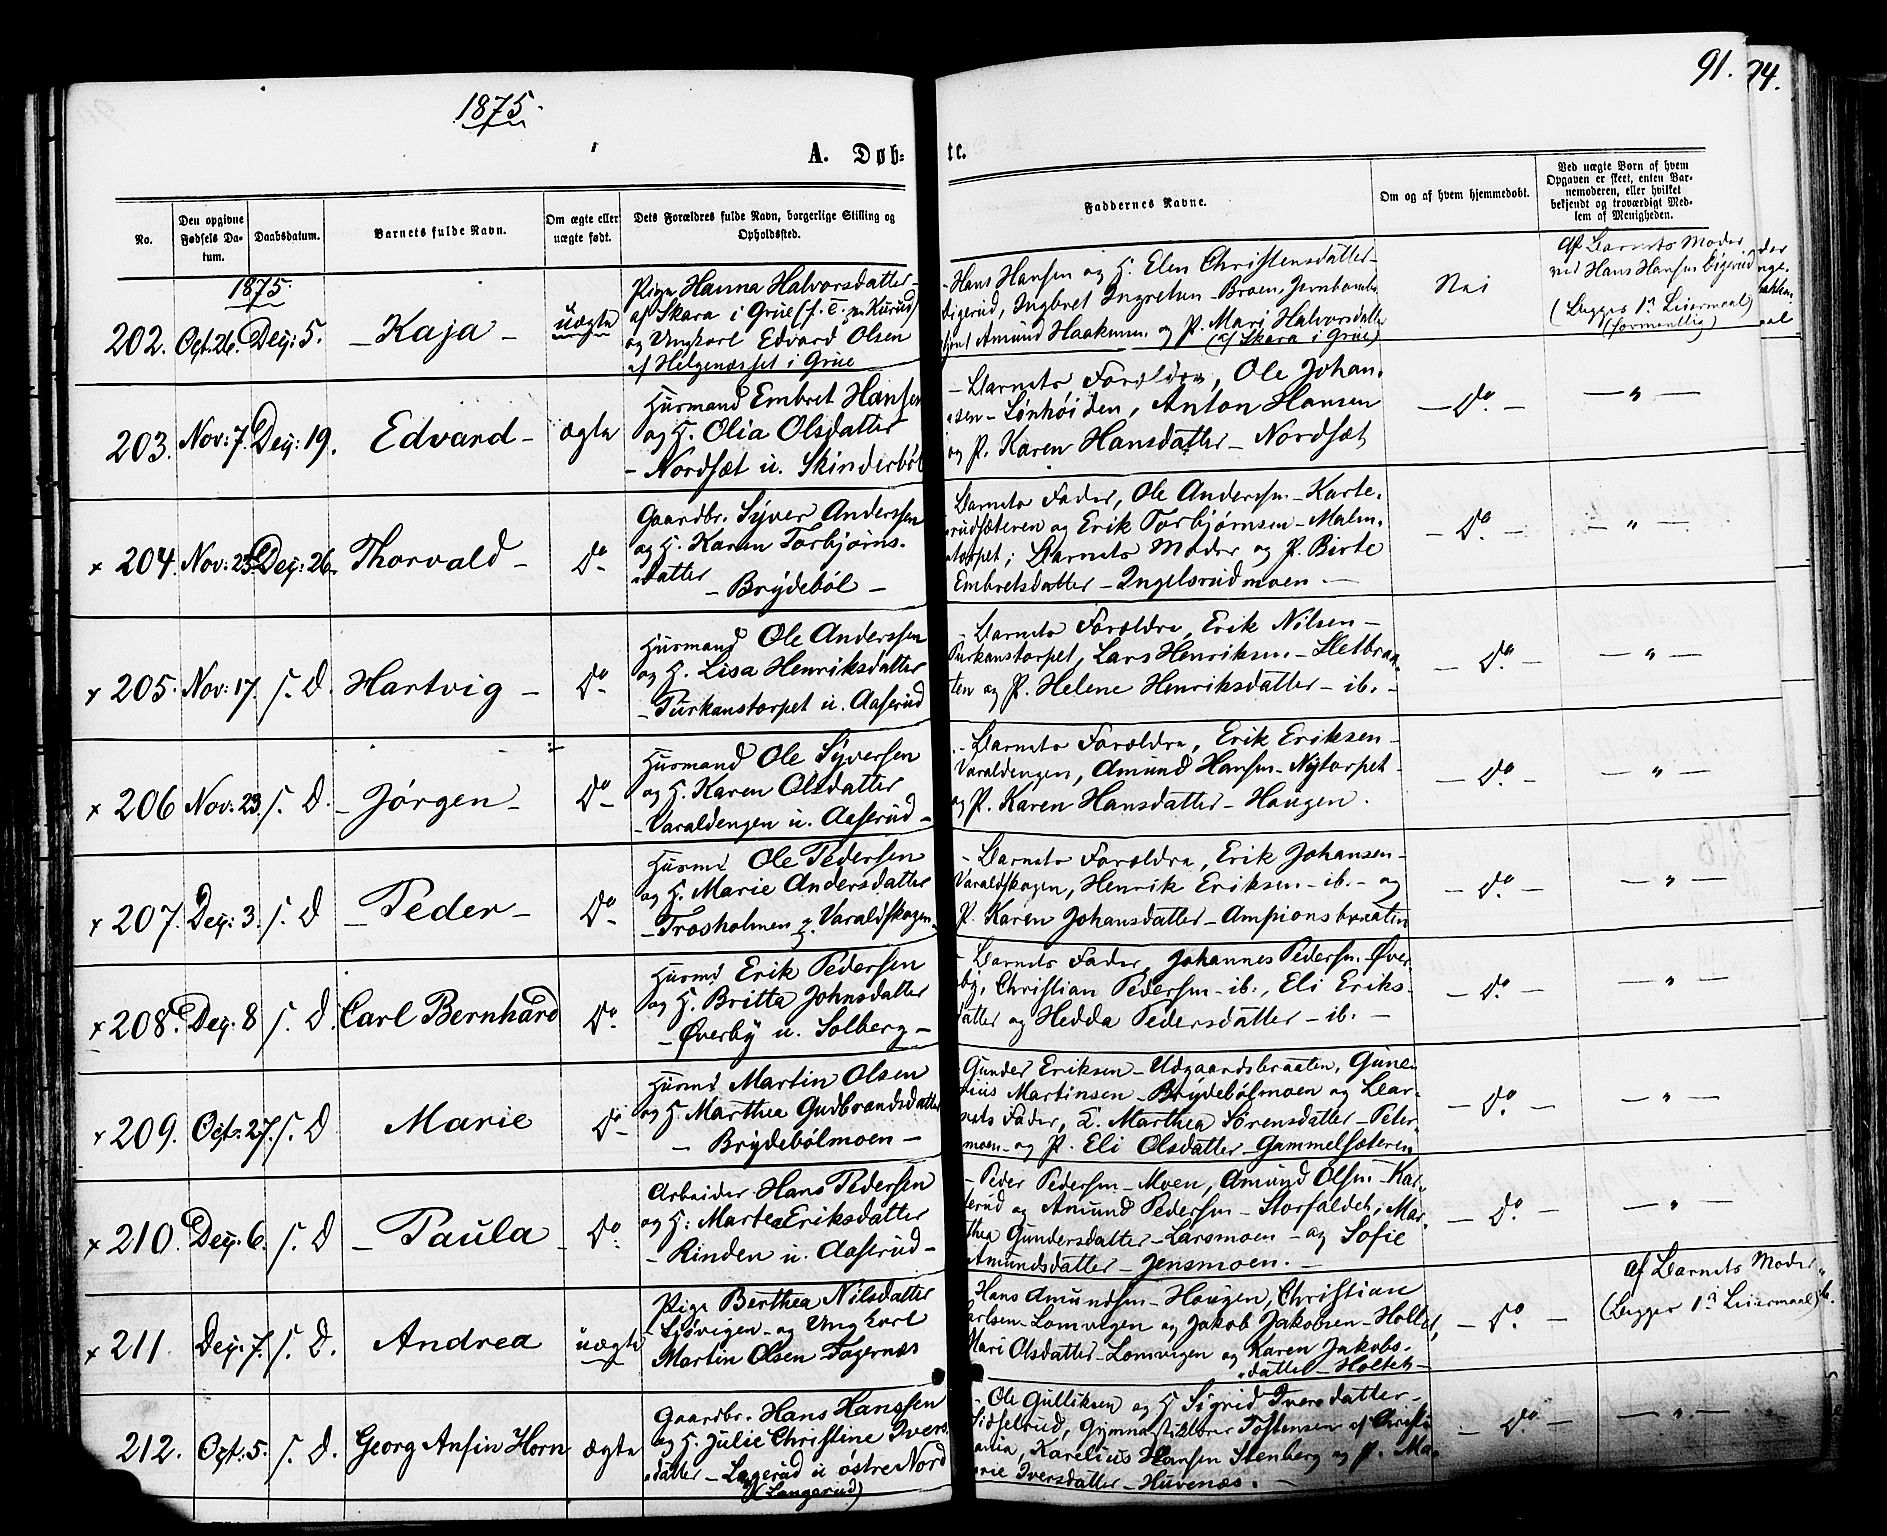 1875.
91.
94.
A. Døb-
te.
No.
Den opgivne Fødsels Da-tum.
Daabsdatum.
Barnets fulde Navn.
Om ægte eller uægte født.
Dets Forældres fulde Navn, borgerlige Stilling og Opholdssted.
Faddernes Navne.
Om og af hvem hjemmedøbt.
Ved uægte Børn af hvem Opgaven er skeet, enten Bar-nemoderen, eller hvilket bekjendt og troværdigt Med-lem af Menigheden.
1875.
202. Oct. 26. Dec: 5. – Kaja – uægte
Pige Hanna Halvorsdatter –
af Skara i Grue
og Ungkarl Edvard Olsen
af Helgenæsset i Grue
Hans Hansen og H. Elen Christensdatter –
Amund Haakensen og P. Mari Halvorsdatter
(af Skara i Grue)
Nei
af Barnets Moder
ved Hans Hansen Digerud
(Begges 1ste Leiermaal)
(formentlig)
203. Nov: 7. Dec: 19. Edvard – ægte
Husmand Embret Hansen
og H. Olia Olsdatter
– Nordsæt u. Skinderbøl
– Barnets Forældre, Ole Johan-
sen – Lønhøiden, Anton Hansen
og P. Karen Hansdatter – Nordsæt
– Do. –
– " –
x 204. Nov: 25. Dec: 26. Thorvald – Do
Gaardbr. Syver Anderssen
og H. Karen Torbjørns-
datter
– Brydebøl –
Barnets Fader, Ole Anderssen – Karte-
rudsæteren og Erik Torbjørnsen – Malm-
torpet; Barnets Moder og P. Birte
Embretsdatter – Ingelsrudmoen. –
– Do. –
– " –
x 205. Nov: 17. s. D. Hartvig – Do
Husmand Ole Anderssen
og H. Lisa Henriksdatter
– Purkanstorpet u. Aaserud
– Barnets Forældre, Erik Nilsen –
Purkanstorpet, Lars Henriksen – Sletbraa-
ten og P. Helene Henriksdatter – ib. –
– Do. –
– " –
x 206 Nov: 23. s. D. – Jørgen – Do
Husmand Ole Syversen
og H. Karen Olsdatter
– Varaldengen u. Aaserud –
– Barnets Forældre, Erik Eriksen –
Varaldengen, Amund Hansen – Nytorpet –
og P. Karen Hansdatter – Haugen.
– Do. –
– " –
x 207. Dec: 3. s. D – Peder – Do
Husmd Ole Pedersen
og H. Marie Andersdatter
– Frosholmen p. Varaldskogen.
– Barnets Forældre, Erik Johansen –
Varaldskogen, Henrik Eriksen – ib. – og
P. Karen Johansdatter – Ampionsbraaten
– Do. –
– " –
x 208. Dec: 8 s. D. Carl Bernhard Do.
Husmd Erik Pedersen
og H. Britta Johnsdatter
– Øverby u. Solberg –
– Barnets Fader, Johannes Pedersen – Øver-
by, Christian Pedersen – ib., Eli Eriks-
datter og Hedda Pedersdatter – ib. –
– Do. –
– " –
x 209. Oct: 27. s. D Marie Do
Husmd Martin Olsen
og H. Marthea Gudbrandsdatter
– Brydebølmoen –
Gunder Eriksen – Udgaardsbraaten, Gune-
rius Martinsen – Brydebølmoen og Bar-
nets Fader, E. Marthea Sørensdatter – Peter-
moen – og P. Eli Olsdatter – Gammelsæteren
– Do. –
– " –
x 210. Dec: 6. s. D – Paula – Do.
Arbeider Hans Pedersen
og H: Martea Eriksdatter
– Rinden u. Aaserud –
– Peder Pedersen – Moen, Amund Olsen – Kar-
terud og Amund Pedersen – Storfaldet; Mar-
thea Gundersdatter – Larsmoen – og Sofie
Amundsdatter – Jensmoen. –
– Do. –
– " –
x 211 Dec: 7. s. D. Andrea uægte
Pige Berthea Nilsdatter
– og Ungkarl
Martin Olsen Fagernæs
Hans Amundsen – Haugen, Christian
Carlsen – Lomvigen og Jakob Jakobsen – Holtet,
Mari Olsdatter – Lomvigen og Karen Jakobs-
datter – Holtet –
– Do. –
af Barnets Moder
(Begges 1ste Leiermaal)
212. Oct: 5. s. D. Georg Anfin Horn ægte
Gaardbr. Hans Hanssen
og H. Julie Christine Ivers-
datter – Lagerud u østre Nord
(Langerud)
– Ole Gulliksen og H Sigrid Iversdatter –
Sidselrud, Gymnastiklærer Tostensen af Christi-
ania, Karelius Hansen Stenberg og P. Ma-
rie Iversdatter – Huvenæs. –
– Do. –
– " –